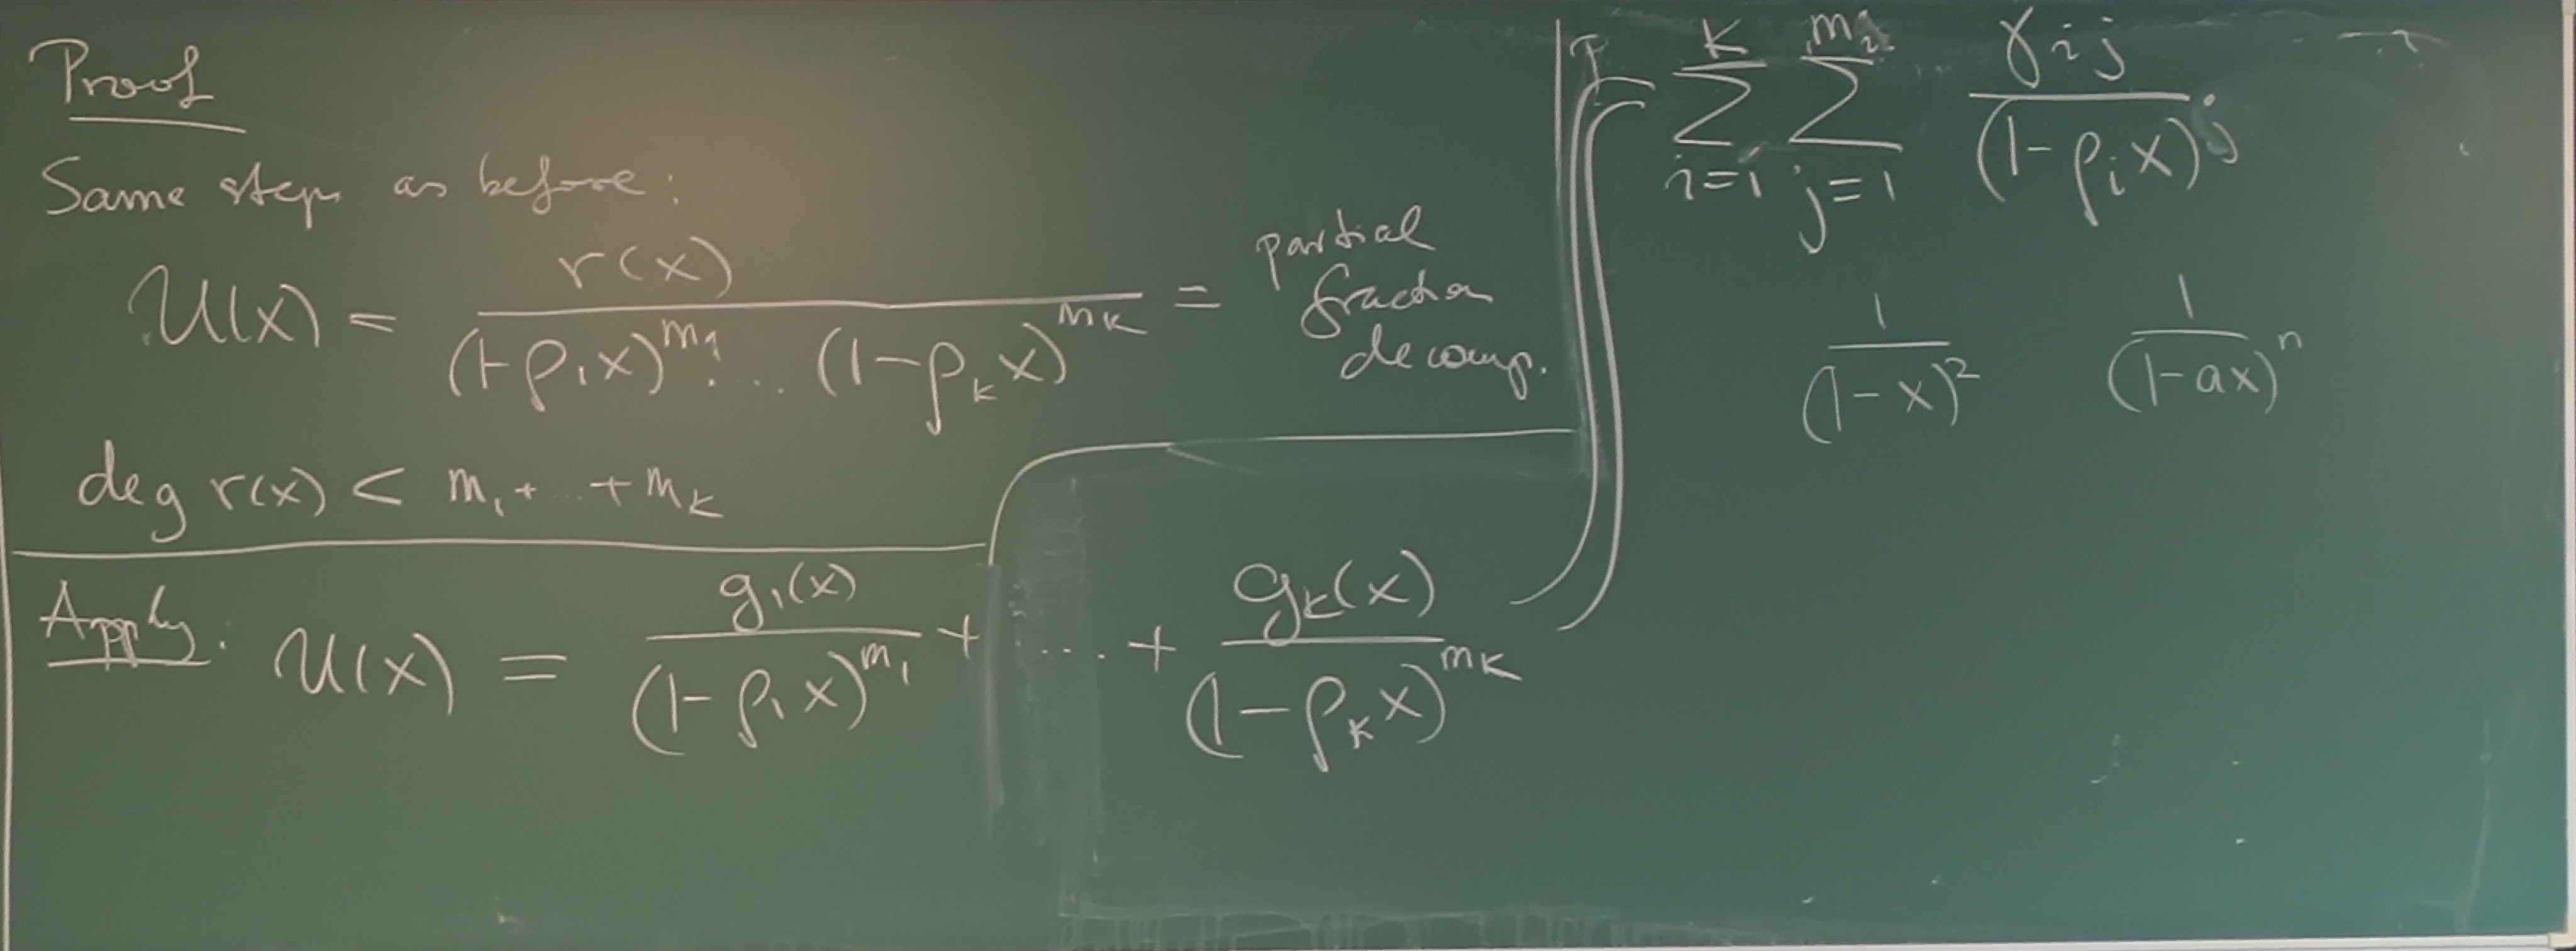 Proof
Same steps as before:
U(x) = r(x) / (1-ρ₁x)^m₁ .... (1-ρ_k x)^m_k = partial fraction decomp.
deg r(x) < m₁ + ... + m_k
Apply: U(x) = g₁(x) / (1-ρ₁x)^m₁ + .... + g_k(x) / (1-ρ_k x)^m_k
∑_{i=1}^{k} ∑_{j=1}^{m_i} γ_{ij} / (1-ρ_i x)^j
1 / (1-x)² 1 / (1-ax)^n